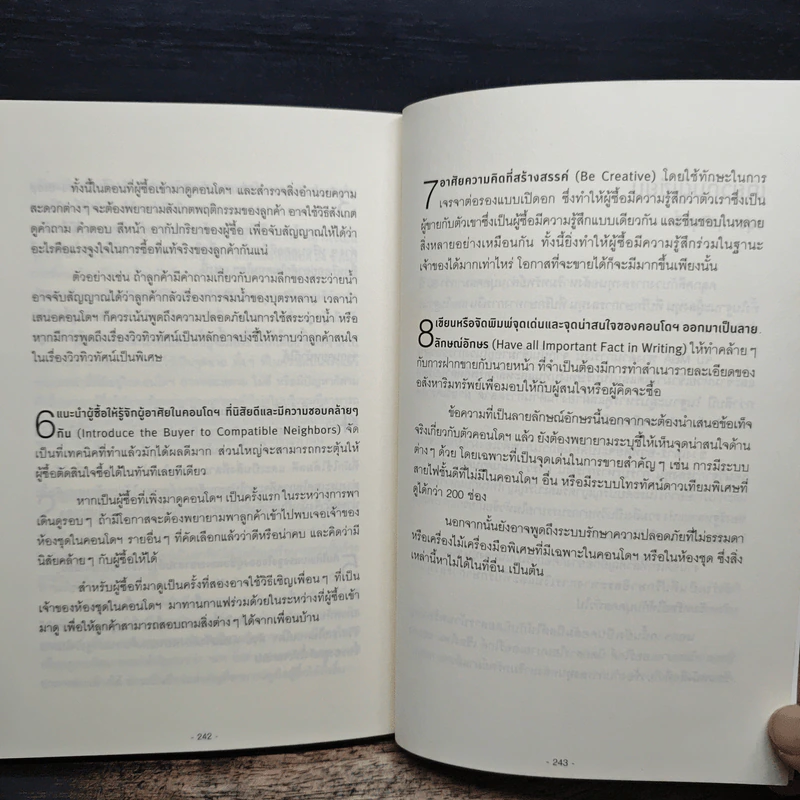 ทั้งนี้ในตอนที่ผู้ซื้อเข้ามาดูคอนโดฯ และสำรวจสิ่งอำนวยความ
สะดวกต่างๆ จะต้องพยายามสังเกตพฤติกรรมของลูกค้า อาจใช้วิธีสังเกต
ดูคำถาม คำตอบ สีหน้า อากัปกริยาของผู้ซื้อ เพื่อจับสัญญาณให้ได้ว่า
อะไรคือแรงจูงใจในการซื้อที่แท้จริงของลูกค้ากันแน่
ตัวอย่างเช่น ถ้าลูกค้ามีคำถามเกี่ยวกับความลึกของสระว่ายน้ำ
อาจจับสัญญาณได้ว่าลูกค้ากลัวเรื่องการจมน้ำของบุตรหลาน เวลานำ
เสนอคอนโดฯ ก็ควรเน้นพูดถึงความปลอดภัยในการใช้สระว่ายน้ำ หรือ
หากมีการพูดถึงเรื่องวิวทิวทัศน์เป็นหลักอาจบ่งชี้ให้ทราบว่าลูกค้าสนใจ
ในเรื่องวิวทิวทัศน์เป็นพิเศษ
6 แนะนำผู้ซื้อให้รู้จักผู้อาศัยในคอนโดฯ ที่นิสัยดีและมีความชอบคล้ายๆ
กัน (Introduce the Buyer to Compatible Neighbors) จัด
เป็นที่เทคนิคที่ทำแล้วมักได้ผลดีมาก ส่วนใหญ่จะสามารถกระตุ้นให้
ผู้ซื้อตัดสินใจซื้อได้ในทันทีเลยทีเดียว
หากเป็นผู้ซื้อที่เพิ่งมาดูคอนโดฯ เป็นครั้งแรก ในระหว่างการพา
เดินดูรอบๆ ถ้ามีโอกาสจะต้องพยายามพาลูกค้าเข้าไปพบเจอเจ้าของ
ห้องชุดในคอนโดฯ รายอื่นๆ ที่คัดเลือกแล้วว่าดีหรือน่าคบ และคิดว่ามี
นิสัยคล้ายๆ กับผู้ซื้อให้ได้
สำหรับผู้ซื้อที่มาดูเป็นครั้งที่สองอาจใช้วิธีเชิญเพื่อนๆ ที่เป็น
เจ้าของห้องชุดในคอนโดฯ มาทานกาแฟร่วมด้วยในระหว่างที่ผู้ซื้อเข้า
มาดู เพื่อให้ลูกค้าสามารถสอบถามสิ่งต่างๆ ได้จากเพื่อนบ้าน
- 242 -
7 อาศัยความคิดที่สร้างสรรค์ (Be Creative) โดยใช้ทักษะในการ
เจรจาต่อรองแบบเปิดอก ซึ่งทำให้ผู้ซื้อมีความรู้สึกว่าตัวเราซึ่งเป็น
ผู้ขายกับตัวเขาซึ่งเป็นผู้ซื้อมีความรู้สึกแบบเดียวกัน และชื่นชอบในหลาย
สิ่งหลายอย่างเหมือนกัน ทั้งนี้ยิ่งทำให้ผู้ซื้อมีความรู้สึกร่วมในฐานะ
เจ้าของได้มากเท่าไหร่ โอกาสที่จะขายได้ก็จะมีมากขึ้นเพียงนั้น
8 เขียนหรือจัดพิมพ์จุดเด่นและจุดน่าสนใจของคอนโดฯ ออกมาเป็นลาย
ลักษณ์อักษร (Have all Important Fact in Writing) ให้ทำคล้ายๆ
กับการฝากขายกับนายหน้า ที่จำเป็นต้องมีการทำสำเนารายละเอียดของ
อสังหาริมทรัพย์เพื่อมอบให้กับผู้สนใจหรือผู้คิดจะซื้อ
ข้อความที่เป็นลายลักษณ์อักษรนี้นอกจากจะต้องนำเสนอข้อเท็จ
จริงเกี่ยวกับตัวคอนโดฯ แล้ว ยังต้องพยายามระบุชี้ให้เห็นจุดน่าสนใจด้าน
ต่างๆ ด้วย โดยเฉพาะที่เป็นจุดเด่นในการขายสำคัญๆ เช่น การมีระบบ
สายไฟชั้นดีที่ไม่มีในคอนโดฯ อื่น หรือมีระบบโทรทัศน์ดาวเทียมพิเศษที่
ดูได้กว่า 200 ช่อง
นอกจากนั้นยังอาจพูดถึงระบบรักษาความปลอดภัยที่ไม่ธรรมดา
หรือเครื่องไม้เครื่องมือพิเศษที่มีเฉพาะในคอนโดฯ หรือในห้องชุด ซึ่งสิ่ง
เหล่านี้หาไม่ได้ในที่อื่น เป็นต้น
- 243 -